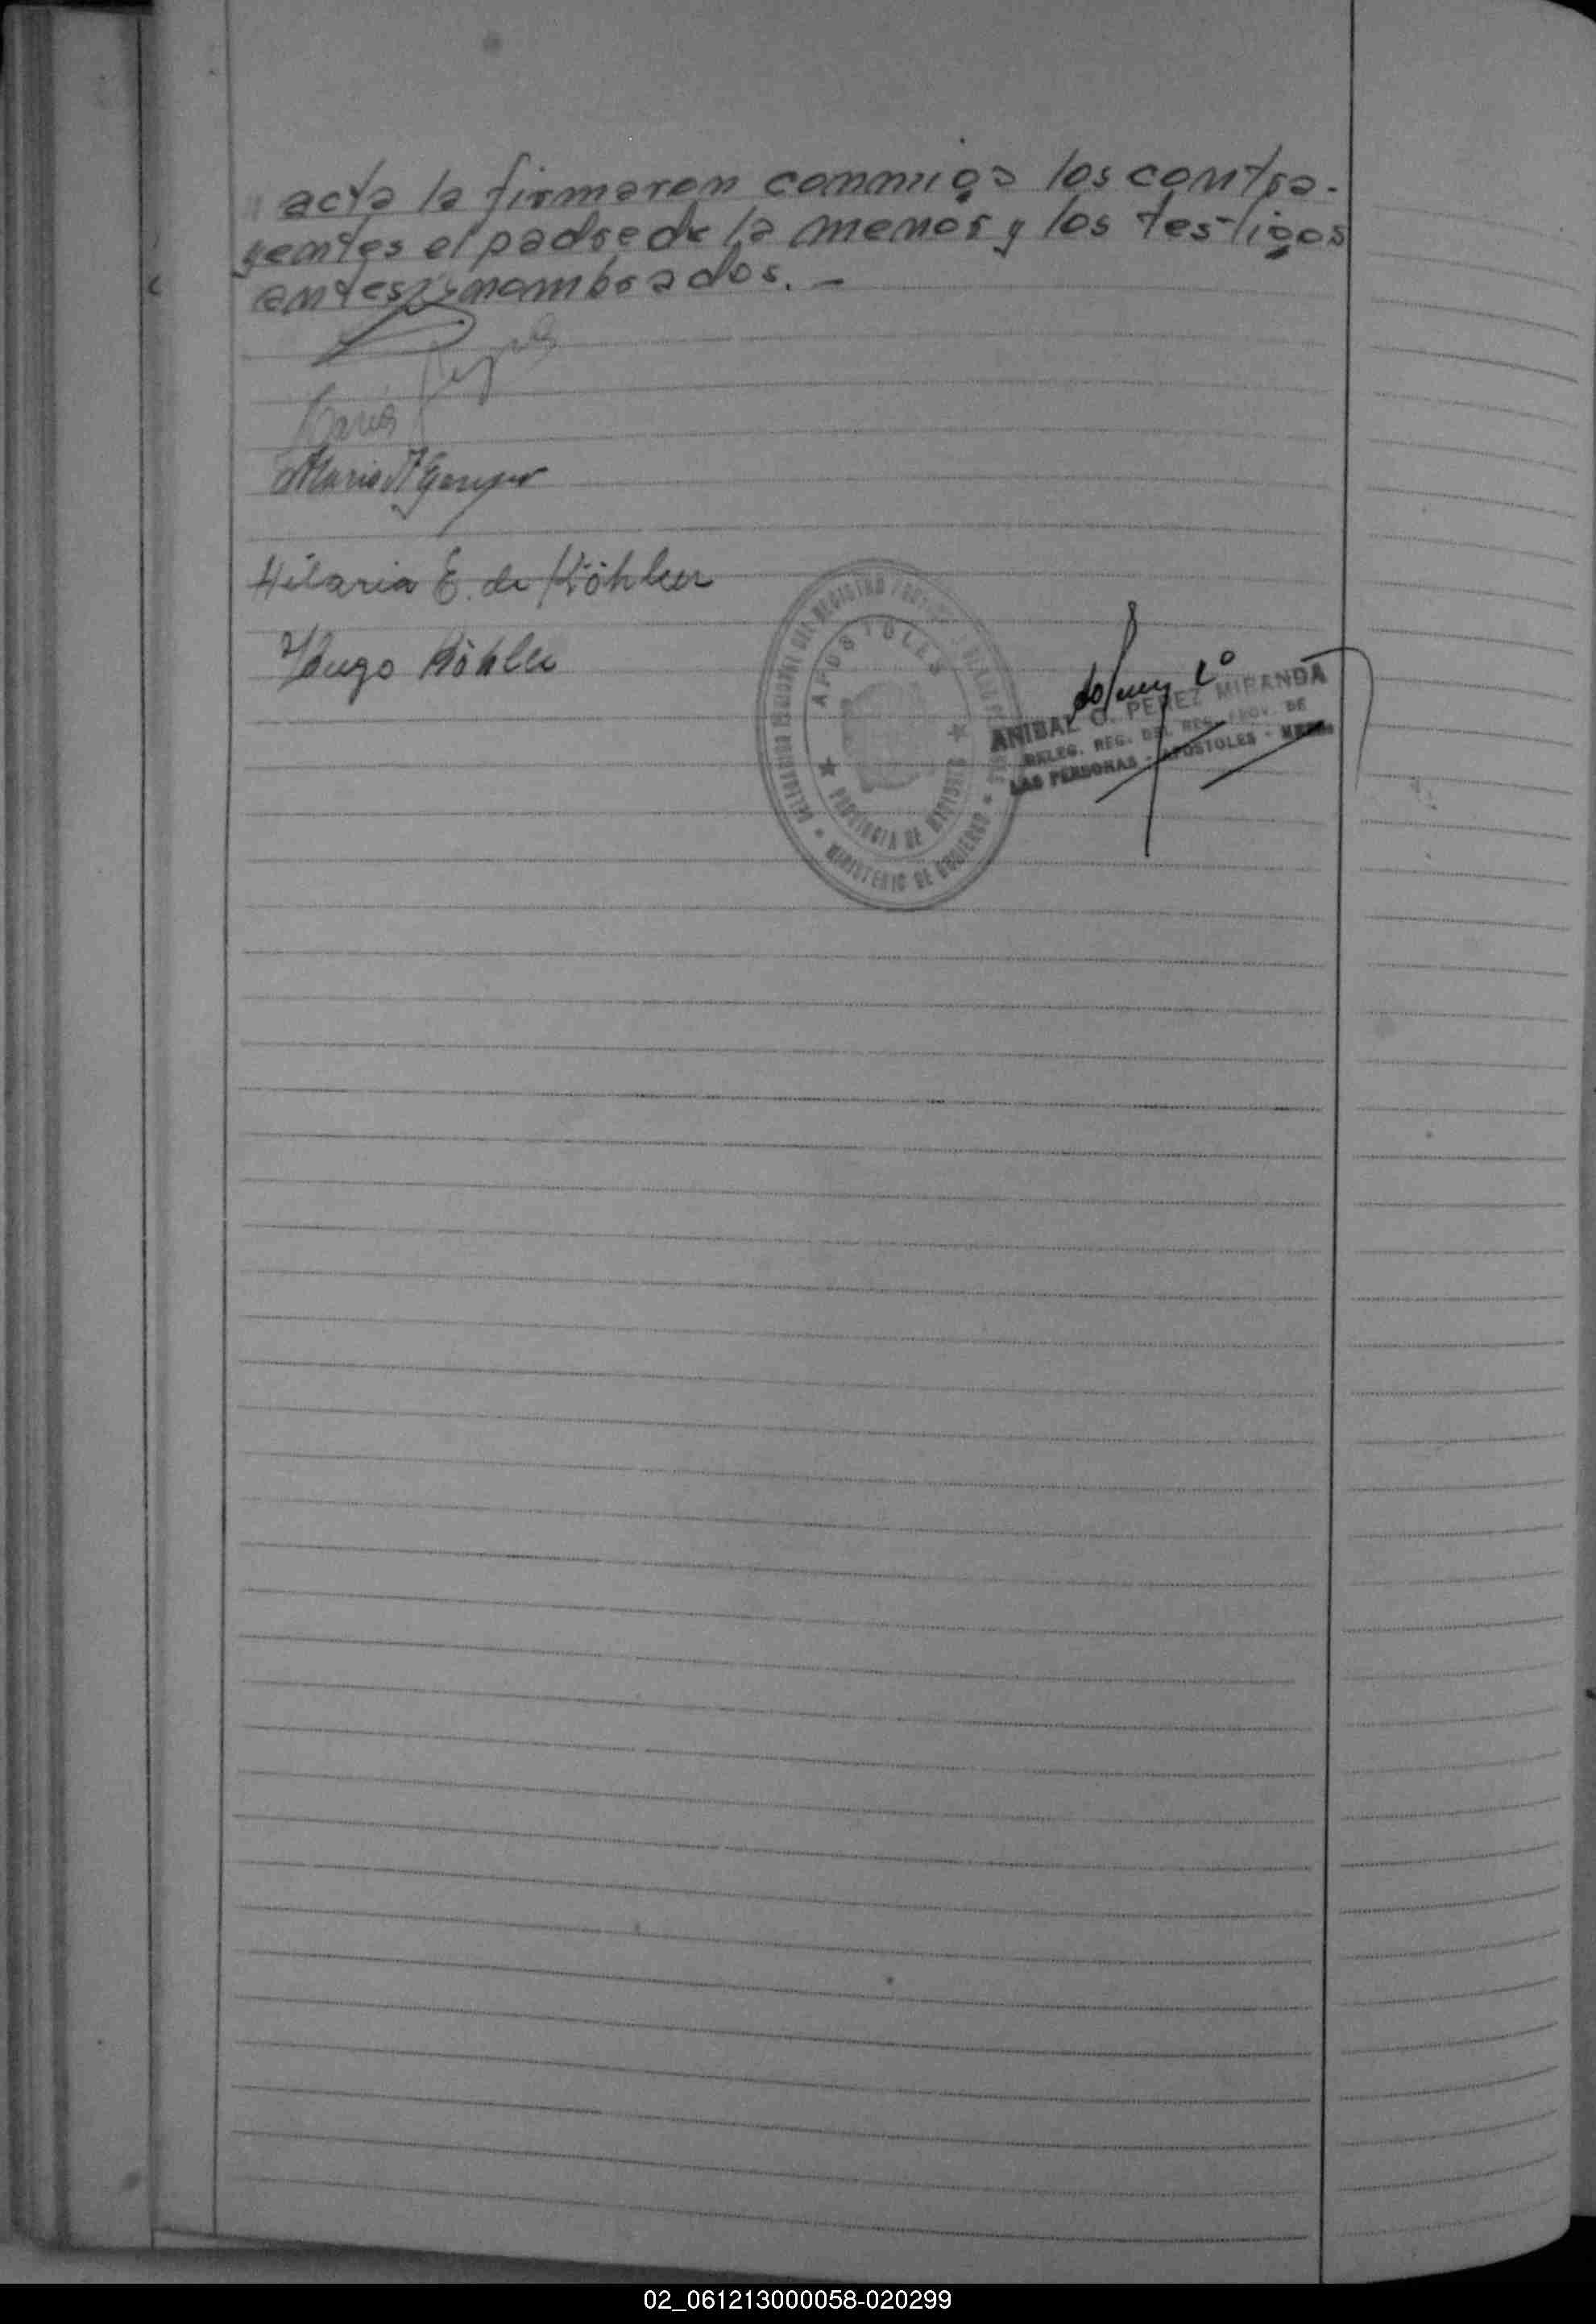 acta la firmaron conmigo los contra-
yentes el padre de la menor y los testigos
antes nombrados. -
Maria
Hilaria E. de Köhler
Hugo Köhler
DELEGACION REGIONAL DEL REGISTRO
APOSTOLES
PROVINCIA DE MISIONES
MINISTERIO DE GOBIERNO
ANIBAL O. PEREZ MIRANDA
DELEG. REG. DEL REG. PROV. DE
LAS PERSONAS - APOSTOLES -
02_061213000058-020299